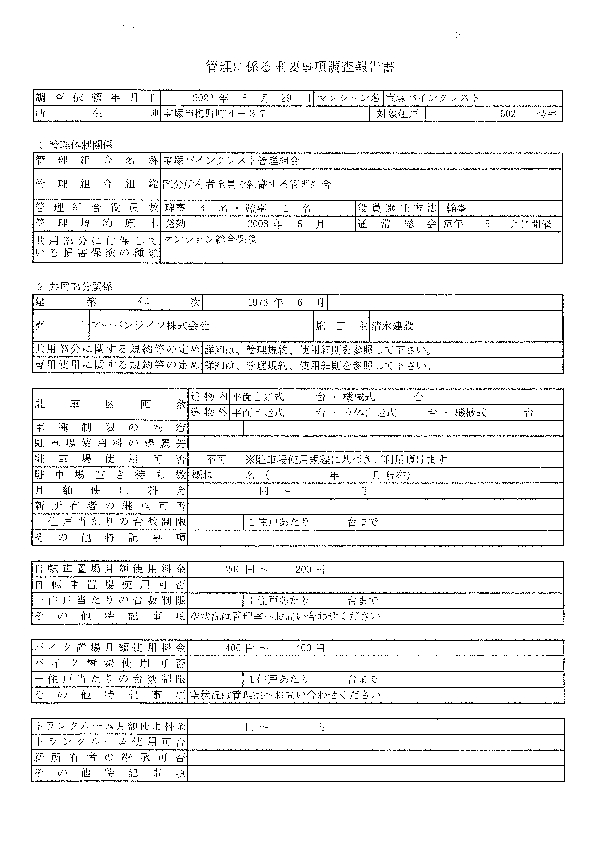 管理に係る重要事項調査報告書
調査依頼年月日 年 月 29 日 マンション名 宝塚パインクレスト
所在地 宝塚市 対象住戸 502 号室
1 管理体制関係
管理組合名称 宝塚パインクレスト管理組合
管理組合組織 区分所有者全員で組織する管理組合
管理組合役員数 理事 名・監事 名 役員選任方法 輪番
管理規約原本 発効 2008 年 5 月 通常総会 毎年 月に開催
共用部分に付保して マンション総合保険
いる損害保険の種類
2 共用部分関係
建築年次 1978 年 6 月
株式会社 施工 清水建設
共用部分に関する規約等の定め 詳細は、管理規約、使用細則を参照して下さい。
専用使用に関する規約等の定め 詳細は、管理規約、使用細則を参照して下さい。
駐車区画数 建物内 平面自走式 台・機械式 台
建物外 平面自走式 台・立体自走式 台・機械式 台
車種制限の内容
駐車場使用料の帰属先
駐車場使用可否 不可 ※駐車場使用規程に基づきご利用頂けます
駐車場空き待ち数 現状 名 ( 年 月 日現在)
月額使用料金 円 ~ 円
新所有者の継承可否
一住戸当たりの台数制限 1住戸あたり 台まで
その他特記事項
自転車置場月額使用料金 200 円 ~ 200 円
自転車置場使用可否
一住戸当たりの台数制限 1住戸あたり 台まで
その他特記事項 空状況は管理室へお問い合わせください
バイク置場月額使用料金 400 円 ~ 400 円
バイク置場使用可否
一住戸当たりの台数制限 1住戸あたり 台まで
その他特記事項 空状況は管理室へお問い合わせください
トランクルーム月額使用料金 円 ~ 円
トランクルーム使用可否
新所有者の継承可否
その他特記事項